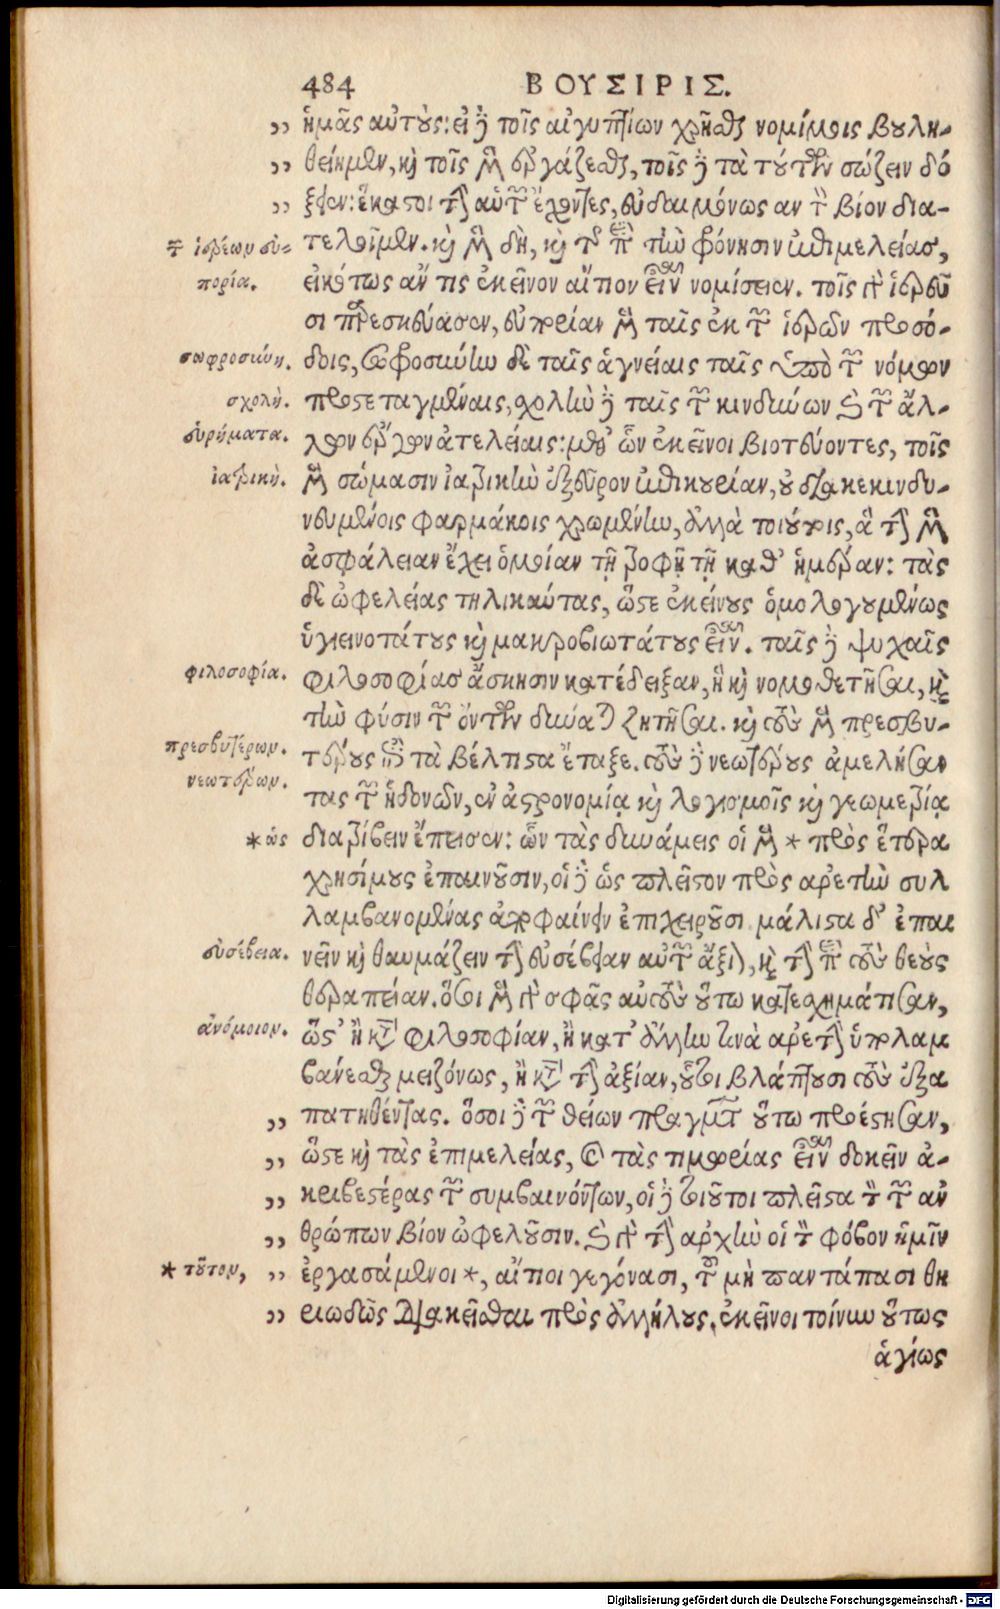 484 ΒΟΥΣΙΡΙΣ.
,, ἡμᾶς αὐτούς: εἰ δὲ τοῖς αἰγυπτίων χρῆσθαι νομίμοις βουλη-
,, θείημεν, καὶ τοῖς μὲν ἐργάζεσθαι, τοῖς δὲ τὰ τούτων σώζειν δό
,, ξειεν: ἕκαστοι τὴν αὑτῶν ἔχοντες, εὐδαιμόνως αν τὸν βίον δια-
ἱερέων εὐ-
τελοῖμεν. καὶ μὲν δὴ, καὶ τῆς περὶ τὴν φρόνησιν ἐπιμελείας,
πορία.
εἰκότως ἄν τις ἐκεῖνον αἴτιον εἶναι νομίσειεν. τοῖς γὰρ ἱερεῦ
σι παρεσκεύασεν, εὐπορίαν μὲν ταῖς ἐκ τῶν ἱερῶν προσό-
σωφροσύνη.
δοις, σωφροσύνην δὲ ταῖς ἁγνείαις ταῖς ὑπὸ τῶν νόμων
σχολή.
προστεταγμέναις, σχολὴν δὲ ταῖς τῶν κινδύνων καὶ τῶν ἄλ-
εὑρήματα.
λων ἔργων ἀτελείαις: μεθ' ὧν ἐκεῖνοι βιοτεύοντες, τοῖς
ἰατρική.
μὲν σώμασιν ἰατρικὴν ἐξεῦρον ἐπικουρίαν, οὐ διακεκινδυ-
νευμένοις φαρμάκοις χρωμένην, ἀλλὰ τοιούτοις, ἃ τὴν μὲν
ἀσφάλειαν ἔχει ὁμοίαν τῇ τροφῇ τῇ καθ' ἡμέραν: τὰς
δὲ ὠφελείας τηλικαύτας, ὥστε ἐκείνους ὁμολογουμένως
ὑγιεινοτάτους καὶ μακροβιωτάτους εἶναι. ταῖς δὲ ψυχαῖς
φιλοσοφία.
φιλοσοφίας ἄσκησιν κατέδειξαν, ἣ καὶ νομοθετῆσαι, καὶ
τὴν φύσιν τῶν ὄντων δύναται ζητῆσαι. καὶ τοὺς μὲν πρεσβυ-
πρεσβυτέρων.
τέρους ἐπὶ τὰ βέλτιστα ἔταξε. τοὺς δὲ νεωτέρους ἀμελήσαν
νεωτέρων.
τας τῶν ἡδονῶν, ἐν ἀστρονομίᾳ καὶ λογισμοῖς καὶ γεωμετρίᾳ
* ὡς
διατρίβειν ἔπεισεν: ὧν τὰς δυνάμεις οἱ μὲν * πρὸς ἕτερα
χρησίμους ἐπαινοῦσιν, οἱ δὲ ὡς πλεῖστον πρὸς αρετὴν συλ
λαμβανομένας ἀποφαίνειν ἐπιχειροῦσι. μάλιστα δ' ἐπαι
εὐσέβεια.
νεῖν καὶ θαυμάζειν τὴν εὐσέβειαν αὐτῶν ἄξιον, καὶ τὴν περὶ τοὺς θεοὺς
θεραπείαν. ὅσοι μὲν γὰρ σφᾶς αὐτοὺς οὕτω κατεσχημάτισαν,
ἀνόμοιον.
ὥστ' ἢ κατὰ φιλοσοφίαν, ἢ κατ' ἄλλην τινὰ αρετὴν ὑπολαμ
βάνεσθαι μειζόνως, ἢ κατὰ τὴν ἀξίαν, οὗτοι βλάπτουσι τοὺς ἐξα
,, πατηθέντας. ὅσοι δὲ τῶν θείων πραγμάτων οὕτω προέστησαν,
,, ὥστε καὶ τὰς ἐπιμελείας, καὶ τὰς τιμωρίας εἶναι δοκεῖν ἀ-
,, κριβεστέρας τῶν συμβαινόντων, οἱ δὲ τοιοῦτοι πλεῖστα τὸν τῶν αν
,, θρώπων βίον ὠφελοῦσιν. καὶ γὰρ τὴν αρχὴν οἱ τὸν φόβον ἡμῖν
* τοῦτον,
,, ἐργασάμενοι *, αἴτιοι γεγόνασι, τοῦ μὴ παντάπασι θη
,, ριωδῶς διακεῖσθαι πρὸς ἀλλήλους. ἐκεῖνοι τοίνυν οὕτως
ἁγίως
Digitalisierung gefördert durch die Deutsche Forschungsgemeinschaft - DFG